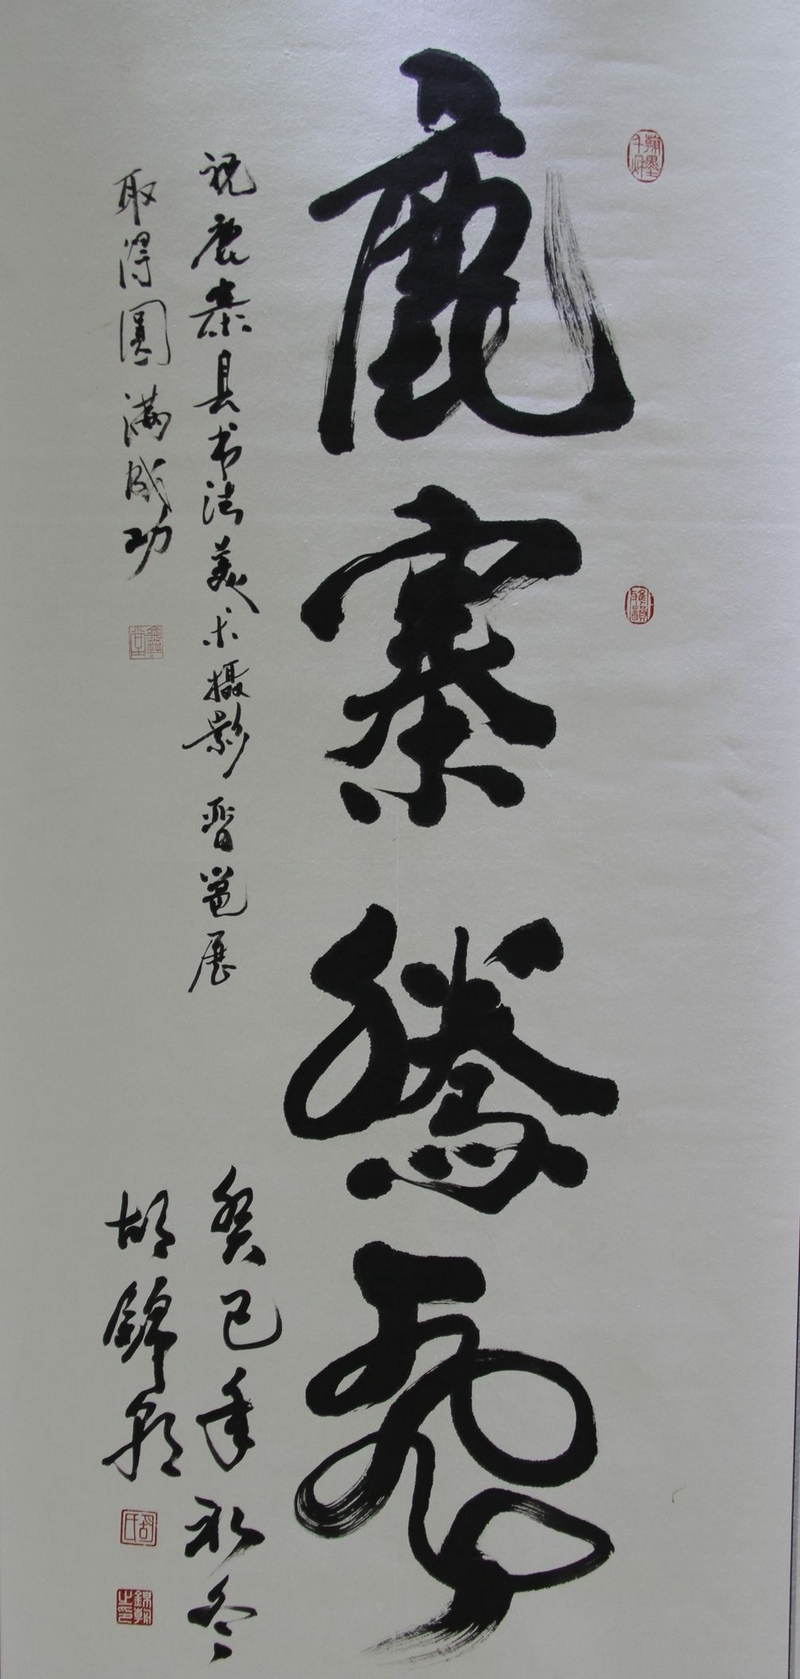 鹿寨騰飛
祝鹿寨县书法美术摄影晋邕展
取得圓滿成功
癸巳年初冬
胡錦朝
胡氏